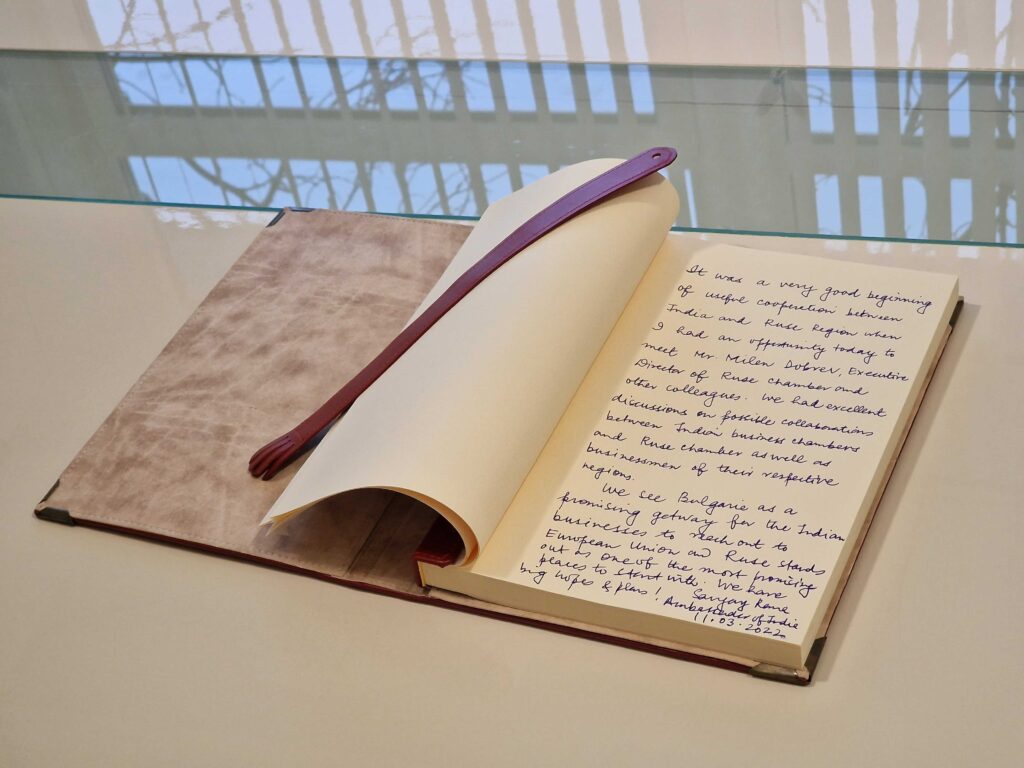 It was a very good beginning
of useful cooperation between
India and Ruse Region when
I had an opportunity today to
meet Mr Milen Dobrev, Executive
Director of Ruse chamber and
other colleagues. We had excellent
discussions on possible collaborations
between Indian business chambers
and Ruse chamber as well as
businessmen of their respective
regions.
We see Bulgaria as a
promising getway for the Indian
businesses to reach out to
European Union and Ruse stands
out as one of the most promising
places to start with. We have
big hopes & plans! Sanjay Rana
Ambassador of India
11.03.2022